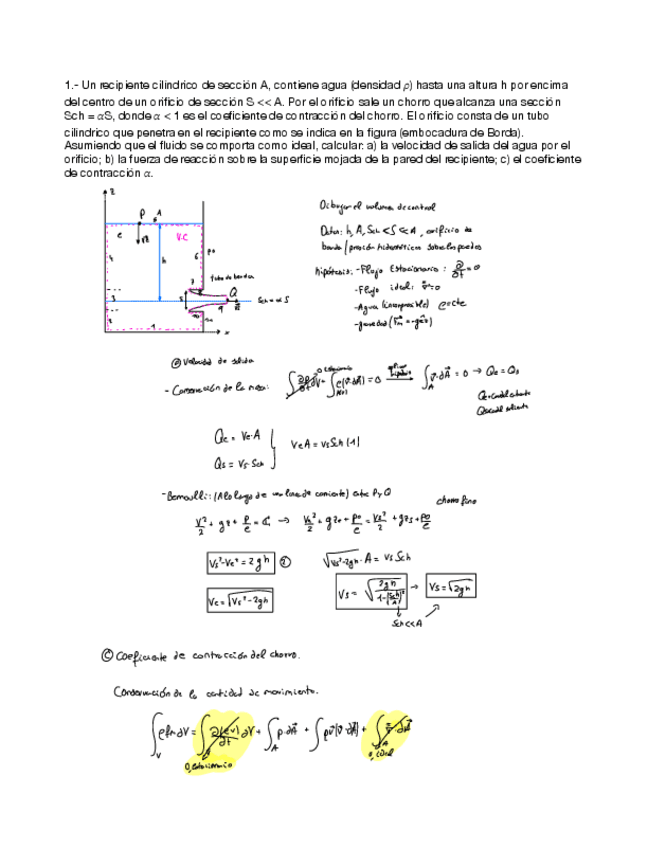 1.- Un recipiente cilíndrico de sección A, contiene agua (densidad ρ) hasta una altura h por encima
del centro de un orificio de sección S << A. Por el orificio sale un chorro que alcanza una sección
Sch = αS, donde α < 1 es el coeficiente de contracción del chorro. El orificio consta de un tubo
cilíndrico que penetra en el recipiente como se indica en la figura (embocadura de Borda).
Asumiendo que el fluido se comporta como ideal, calcular: a) la velocidad de salida del agua por el
orificio; b) la fuerza de reacción sobre la superficie mojada de la pared del recipiente; c) el coeficiente
de contracción α.
z
P A
e V.C
h
Q
Sch = α S
x
Dibujar el volumen de control
Datos: h, A, Sch < S << A, orificio de
borda / presión hidrostática sobre las paredes
hipótesis: - Flujo Estacionario: ∂/∂t = 0
- Flujo ideal:
- Agua (incompresible) ρ = cte
- gravedad
ⓐ Velocidad de salida
- Conservación de la masa:
∫ v·dA = 0 → Qe = Qs
Qe = Ve·A
Qs = Vs·Sch
VeA = VsSch (1)
- Bernoulli: (A lo largo de una línea de corriente) entre P y Q
chorro fino
Vs² - Ve² = 2gh ②
√Vs²-2gh · A = Vs Sch
Ve = √Vs² - 2gh
Vs = √2gh / 1-(Sch/A)² → Vs = √2gh
Sch << A
ⓒ Coeficiente de contracción del chorro.
Conservación de la cantidad de movimiento.
0, estacionario
0, ideal